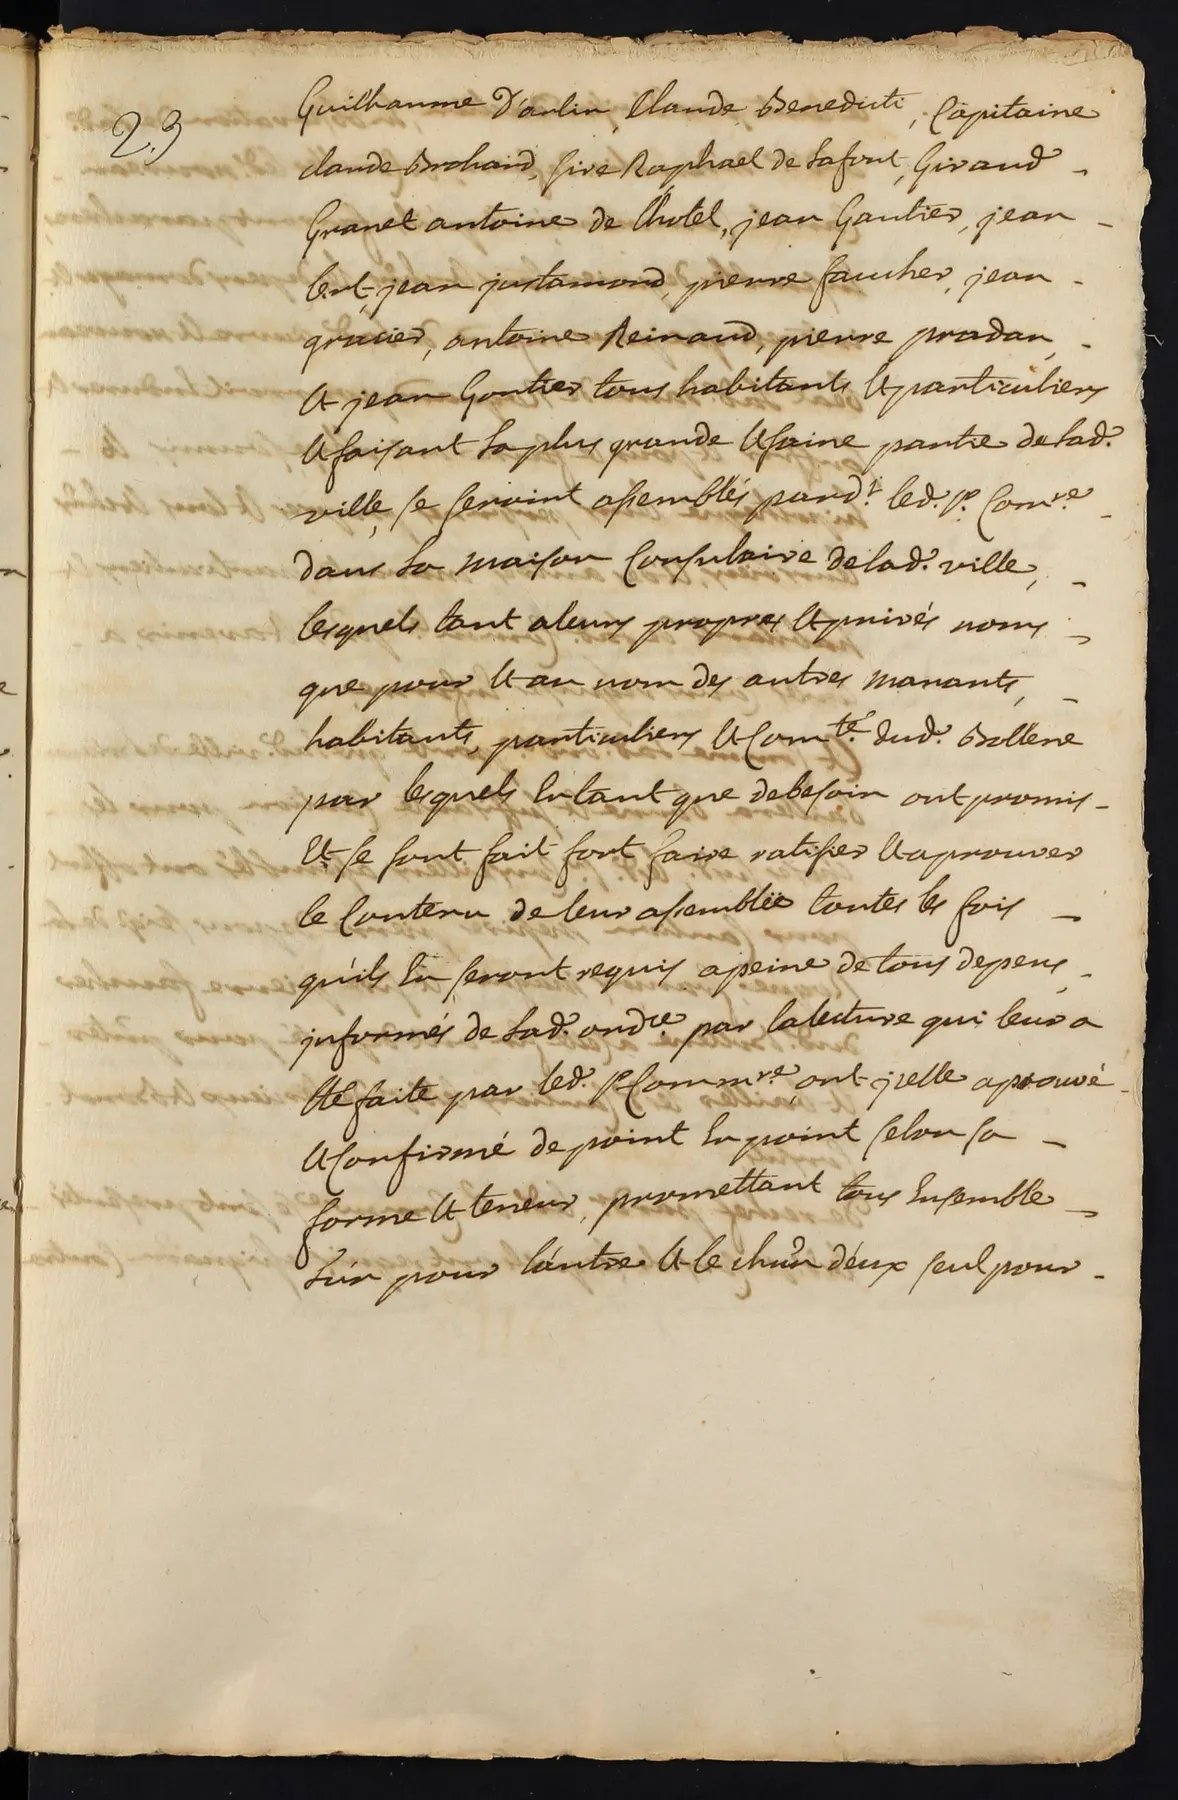 23
Guilhaume D'arlin, Claude Benedicti, Capitaine
claude Brohard, sire Raphael de Lafont, Giraud
Granet antoine de l'hotel, jean Gautier, jean
bert, jean justamond, pierre faucher, jean
gracier, antoine Reinaud, pierre pradan,
et jean Gontier tous habitants et particuliers
et faisant la plus grande et saine partie de lad.e
ville, se seroint assemblés pard.t led. s.r Com.re
dans la maison Consulaire delad.e ville,
lesquels tant aleurs propres et privés noms
que pour et au nom des autres manants,
habitants, particuliers et Com.té dud. Bollene
par lesquels entant que debesoin ont promis
et se sont fait fort faire ratifier et aprouver
le Contenu de leur assemblée toutes les fois
qu'ils en seront requis apeine de tous depens,
informés de lad.e ond.ce par lalecture qui leur a
eté faite par led. s.r Comm.re ont jcelle aprouvé
et Confirmé de point en point selon sa
forme et teneur, promettant tous ensemble
l'un pour l'autre et le chun d'eux seul pour